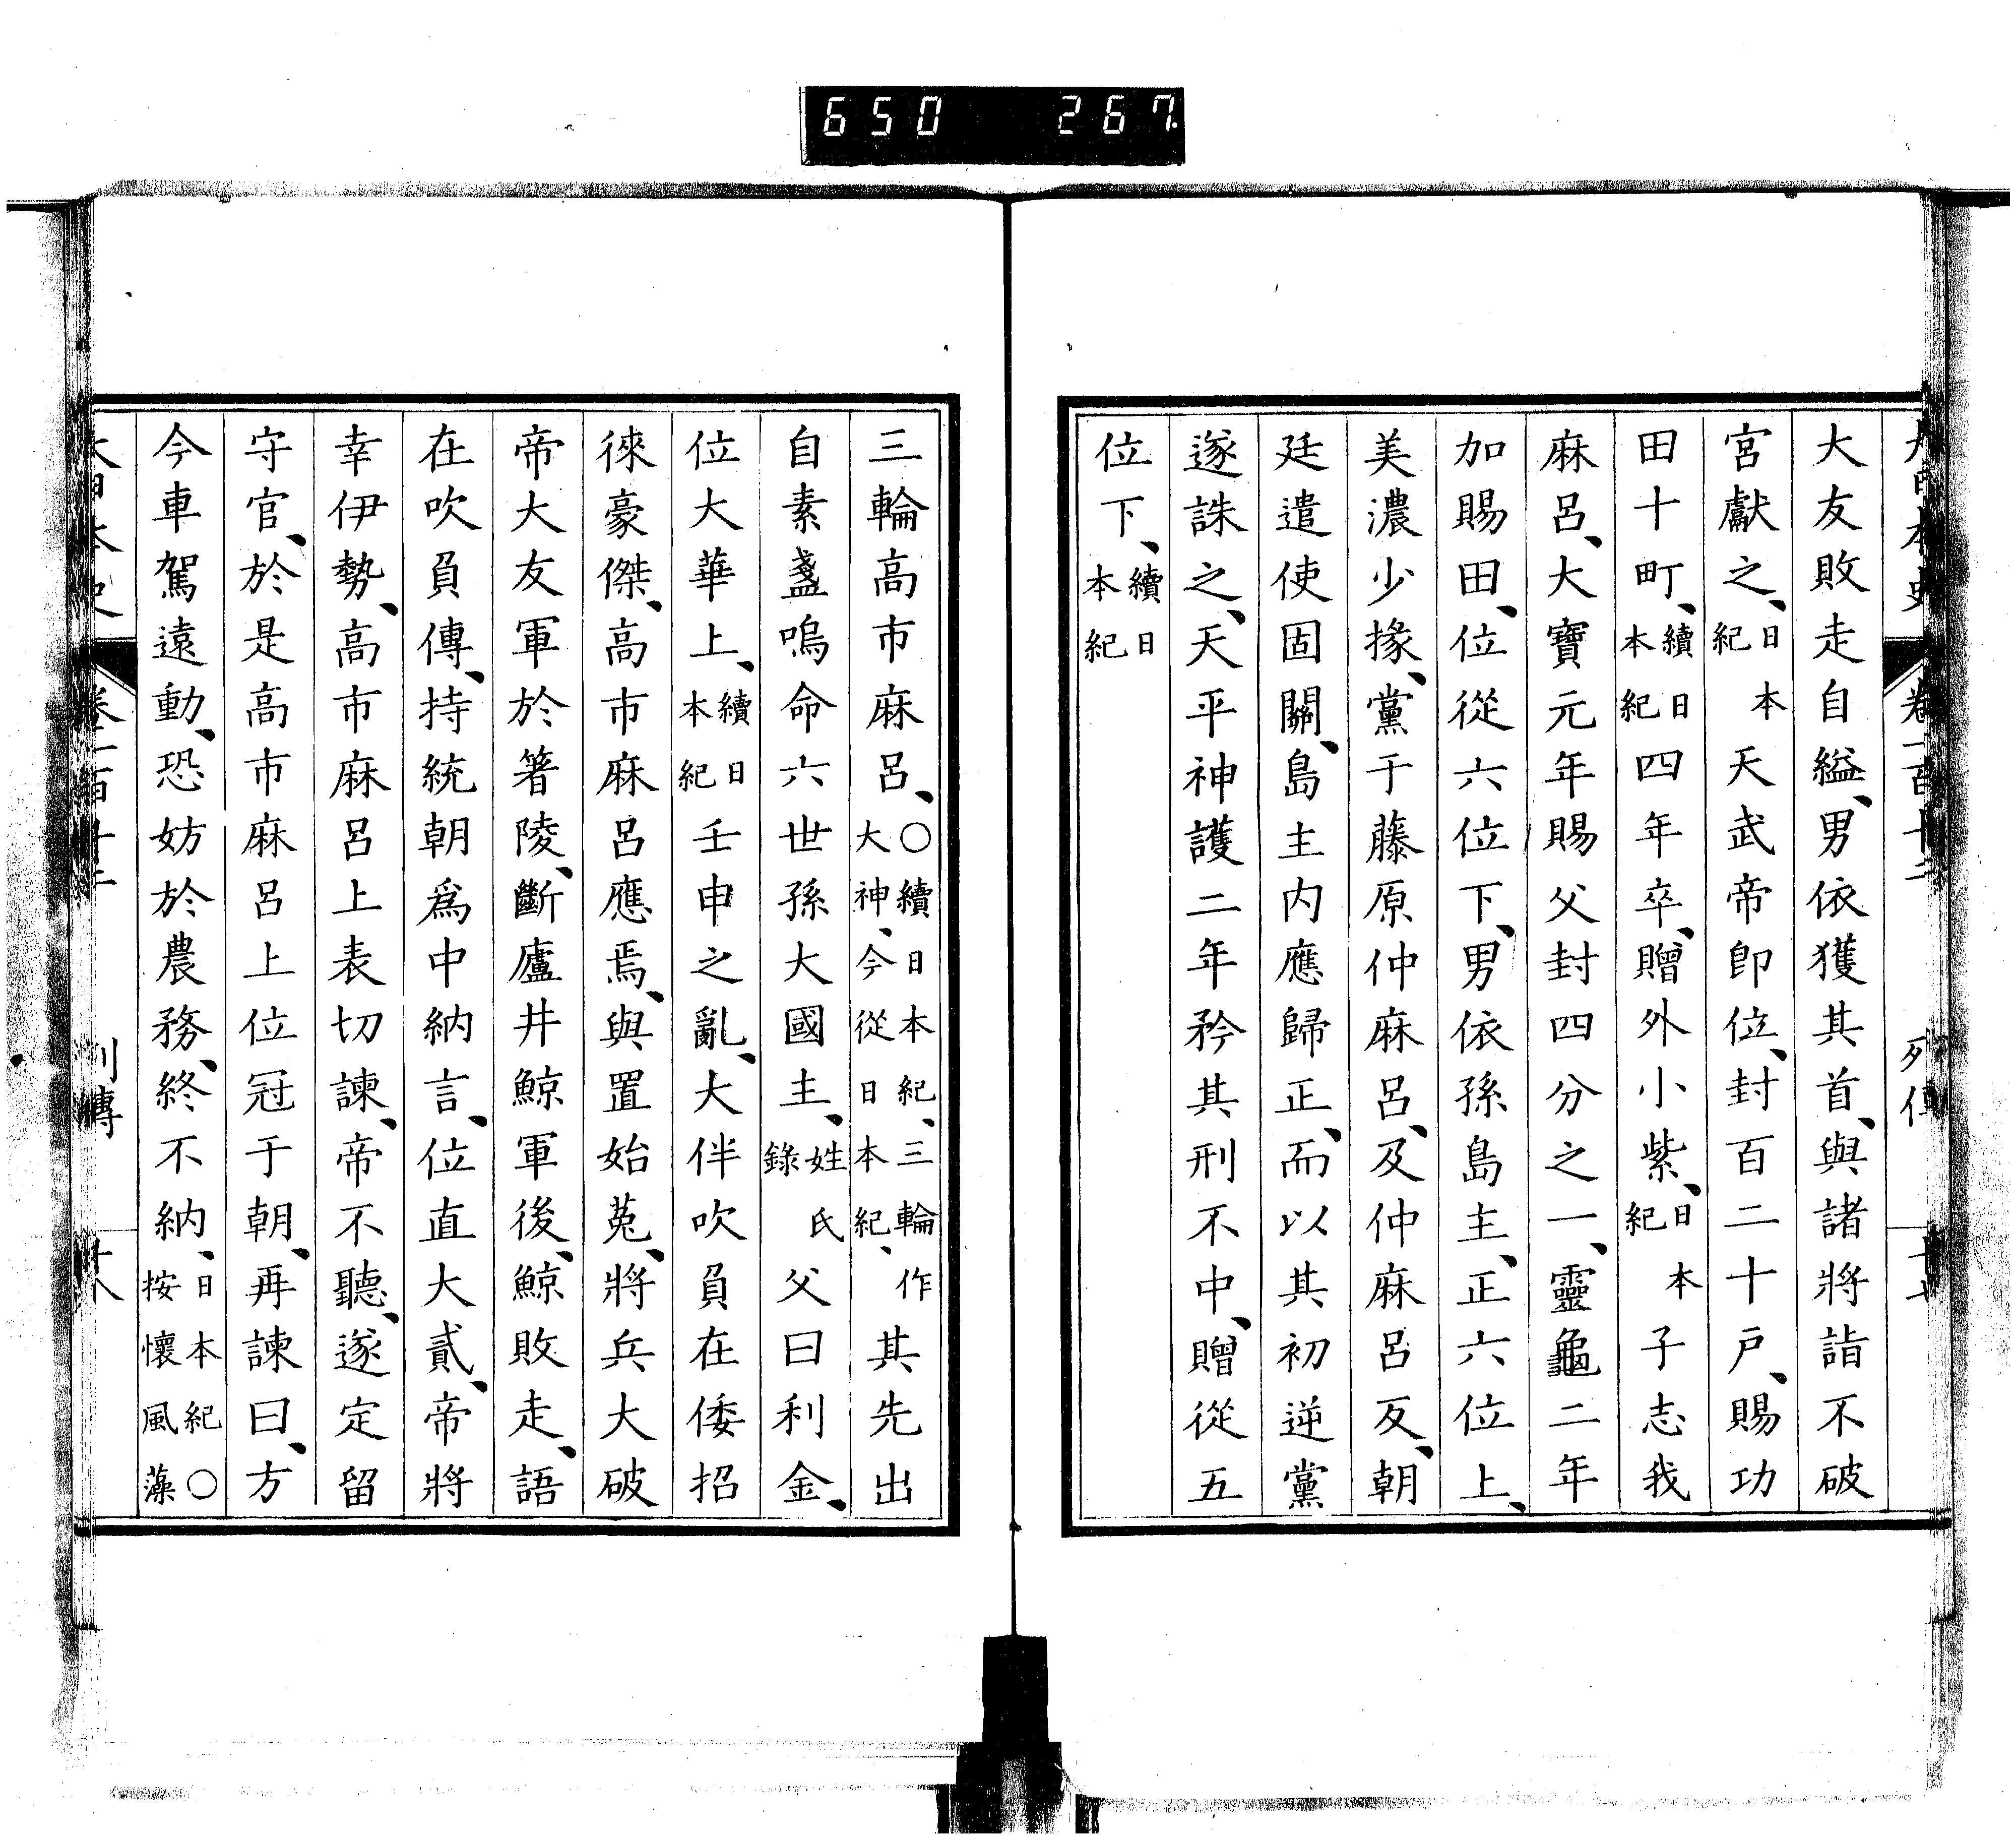 650 267
大友敗走自縊、男依獲其首、與諸將詣不破
宮獻之、日本紀天武帝即位、封百二十戶、賜功
田十町、續日本紀四年卒、贈外小紫、日本紀子志我
麻呂、大寶元年賜父封四分之一、靈龜二年
加賜田、位從六位下、男依孫島主、正六位上、
美濃少掾、黨于藤原仲麻呂、及仲麻呂反、朝
廷遣使固關、島主内應歸正、而以其初逆黨
遂誅之、天平神護二年矜其刑不中、贈從五
位下、續日本紀
三輪高市麻呂、○續日本紀、三輪作大神、今從日本紀、其先出
自素盞嗚命六世孫大國主、姓氏錄父曰利金、
位大華上、續日本紀壬申之亂、大伴吹負在倭招
徠豪傑、高市麻呂應焉、與置始菟、將兵大破
帝大友軍於箸陵、斷廬井鯨軍後、鯨敗走、語
在吹負傳、持統朝爲中納言、位直大貳、帝將
幸伊勢、高市麻呂上表切諫、帝不聽、遂定留
守官、於是高市麻呂上位冠于朝、再諫曰、方
今車駕遠動、恐妨於農務、終不納、日本紀○按懷風藻